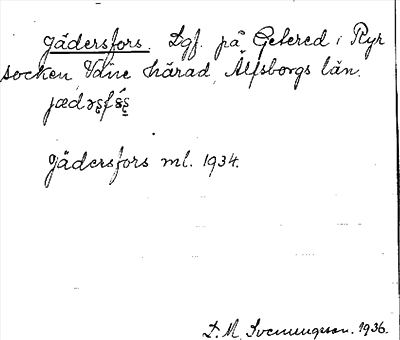 Jädersfors. Lgf. på Getered i Ryr
socken, Väne härad, Älfsborgs län.
Jädersfors ml. 1934.
D. M. Svenungsson. 1936.